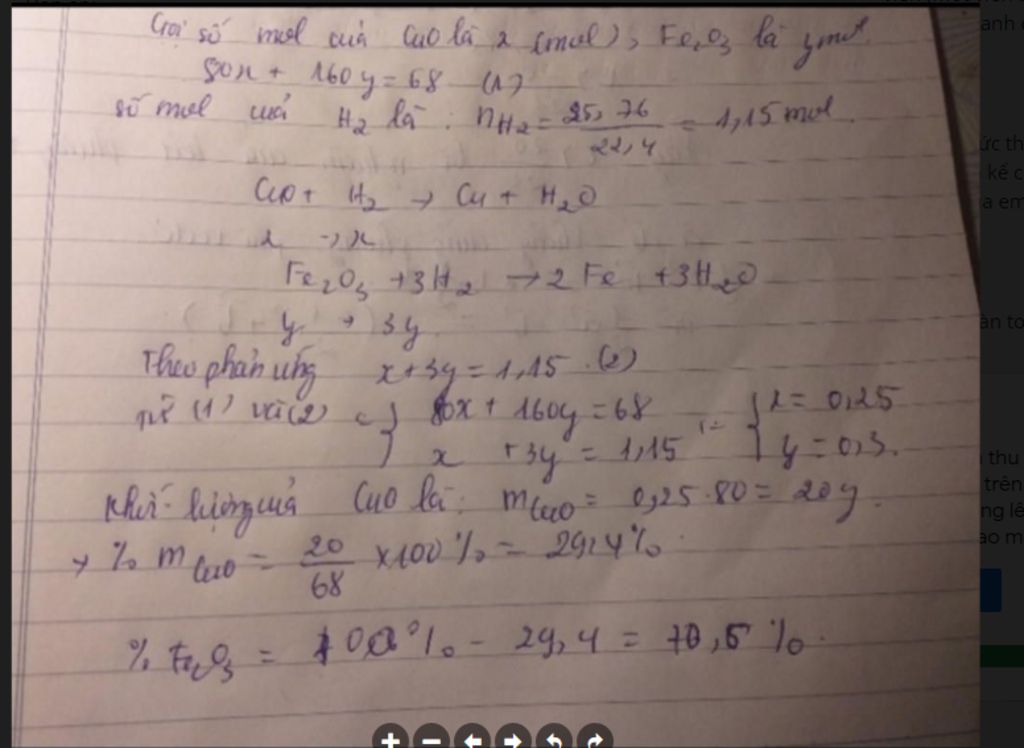 Gọi số mol của CuO là x (mol), Fe2O3 là y mol
80x + 160y = 68 (1)
số mol của H2 là : nH2 = 25,76 / 22,4 = 1,15 mol.
CuO + H2 → Cu + H2O
x → x
Fe2O3 + 3H2 → 2Fe + 3H2O
y → 3y
Theo phản ứng x + 3y = 1,15 (2)
từ (1) và (2) { 80x + 160y = 68 { x = 0,25
x + 3y = 1,15 y = 0,3.
Khối lượng của CuO là : mCuO = 0,25.80 = 20g.
→ % mCuO = 20 / 68 x100% = 29,4%.
% Fe2O3 = 100% - 29,4 = 70,6%.
anh
ức th
kể c
a em
àn to
thu
trên
ng lê
ao m